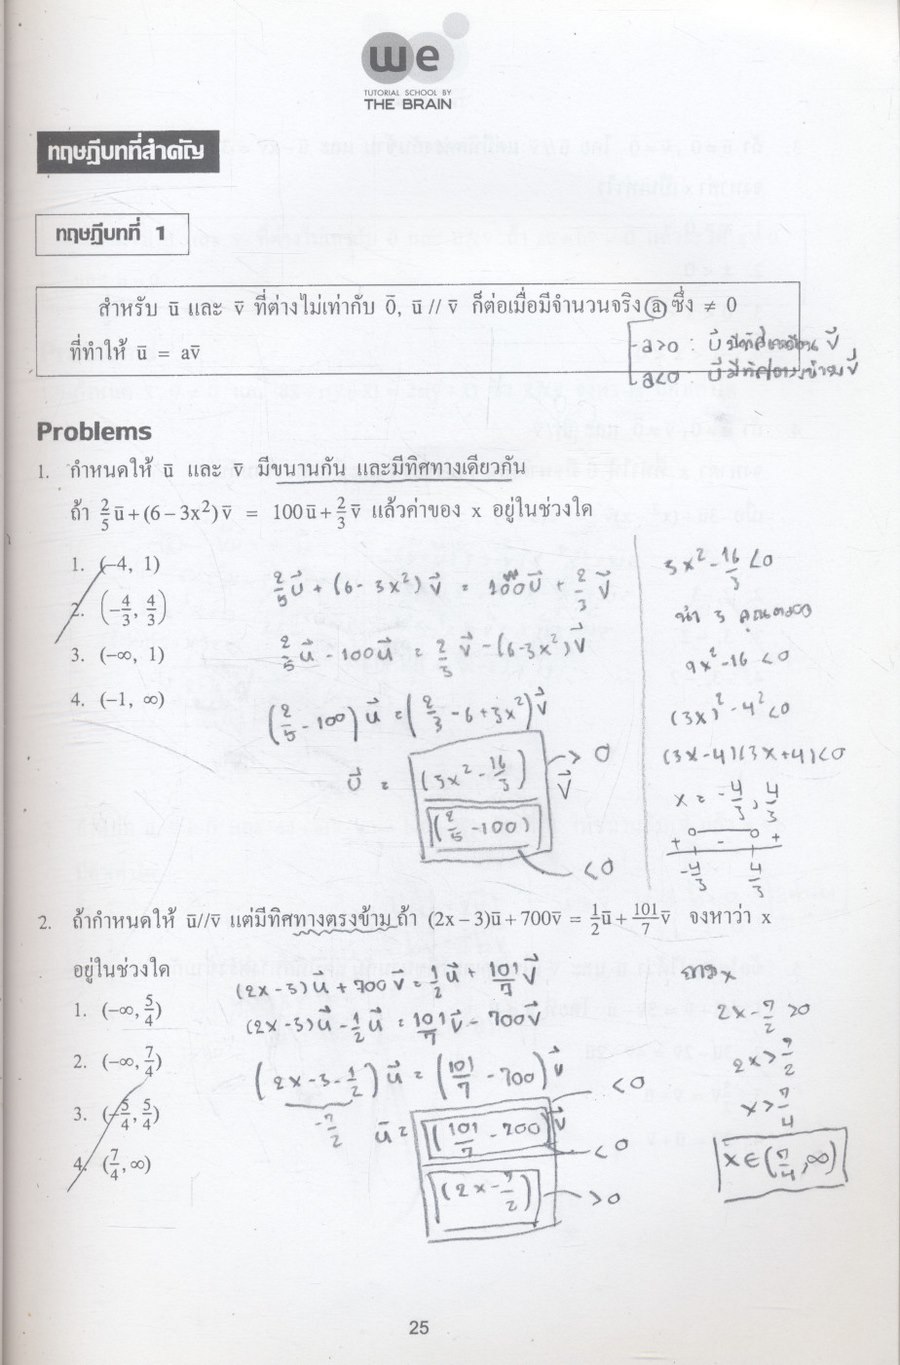 we
TUTORIAL SCHOOL BY
THE BRAIN
ทฤษฎีบทที่สำคัญ
ทฤษฎีบทที่ 1
สำหรับ ū และ v̄ ที่ต่างไม่เท่ากับ 0̄, ū // v̄ ก็ต่อเมื่อมีจำนวนจริง a ซึ่ง ≠ 0
ที่ทำให้ ū = av̄
a>0 : ū มีทิศเดียวกับ v̄
a<0 : ū มีทิศตรงข้าม v̄
Problems
1. กำหนดให้ ū และ v̄ มีขนานกัน และมีทิศทางเดียวกัน
ถ้า 2/5 ū + (6 – 3x²) v̄ = 100ū + 2/3 v̄ แล้วค่าของ x อยู่ในช่วงใด
1. (–4, 1)
2. (–4/3, 4/3)
3. (–∞, 1)
4. (–1, ∞)
2/5 ū + (6 - 3x²) v̄ = 100ū + 2/3 v̄
2/5 ū - 100ū = 2/3 v̄ - (6-3x²) v̄
(2/5 - 100) ū = (2/3 - 6 + 3x²) v̄
ū = (3x² - 16/3) / (2/5 - 100) v̄
> 0
<0
3x² - 16/3 < 0
นำ 3 คูณตลอด
9x² - 16 < 0
(3x)² - 4² < 0
(3x - 4)(3x + 4) < 0
x = -4/3, 4/3
+ - +
-4/3 4/3
2. ถ้ากำหนดให้ ū//v̄ แต่มีทิศทางตรงข้าม ถ้า (2x – 3)ū + 700v̄ = 1/2 ū + 101/7 v̄ จงหาว่า x
อยู่ในช่วงใด
1. (–∞, 5/4)
2. (–∞, 7/4)
3. (–5/4, 5/4)
4. (7/4, ∞)
(2x - 3)ū + 700 v̄ = 1/2 ū + 101/7 v̄
(2x - 3)ū - 1/2 ū = 101/7 v̄ - 700v̄
(2x - 3 - 1/2) ū = (101/7 - 700) v̄
-7/2
ū = (101/7 - 700) / (2x - 7/2) v̄
<0
<0
>0
2x - 7/2 > 0
2x > 7/2
x > 7/4
x ∈ (7/4, ∞)
25